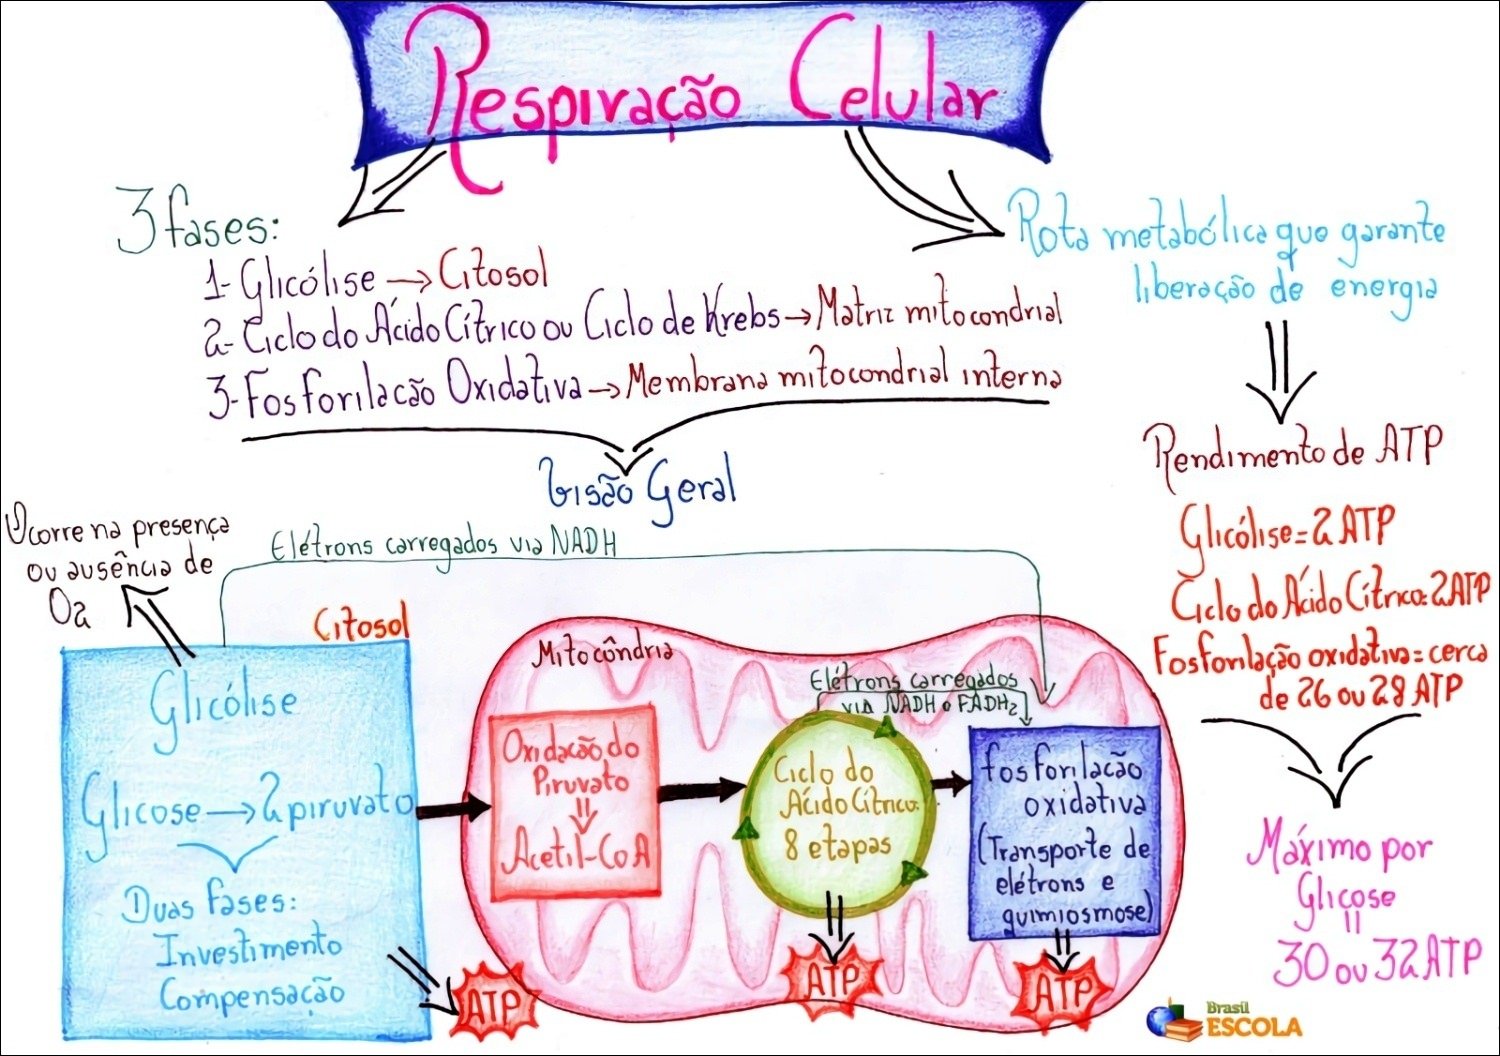 Respiração Celular
3 fases:
1- Glicólise → Citosol
2- Ciclo do Ácido Cítrico ou Ciclo de Krebs → Matriz mitocondrial
3- Fosforilação Oxidativa → Membrana mitocondrial interna
Visão Geral
Rota metabólica que garante
liberação de energia
Rendimento de ATP
Glicólise = 2 ATP
Ciclo do Ácido Cítrico = 2 ATP
Fosforilação oxidativa = cerca
de 26 ou 28 ATP
Máximo por
Glicose
=
30 ou 32 ATP
Ocorre na presença
ou ausência de
O2
Elétrons carregados via NADH
Citosol
Glicólise
Glicose → 2 piruvato
Duas fases:
Investimento
Compensação
ATP
Mitocôndria
Oxidação do
Piruvato
Acetil-CoA
Elétrons carregados
via NADH e FADH2
Ciclo do
Ácido Cítrico:
8 etapas
ATP
fosforilação
oxidativa
(Transporte de
elétrons e
quimiosmose)
ATP
Brasil
ESCOLA